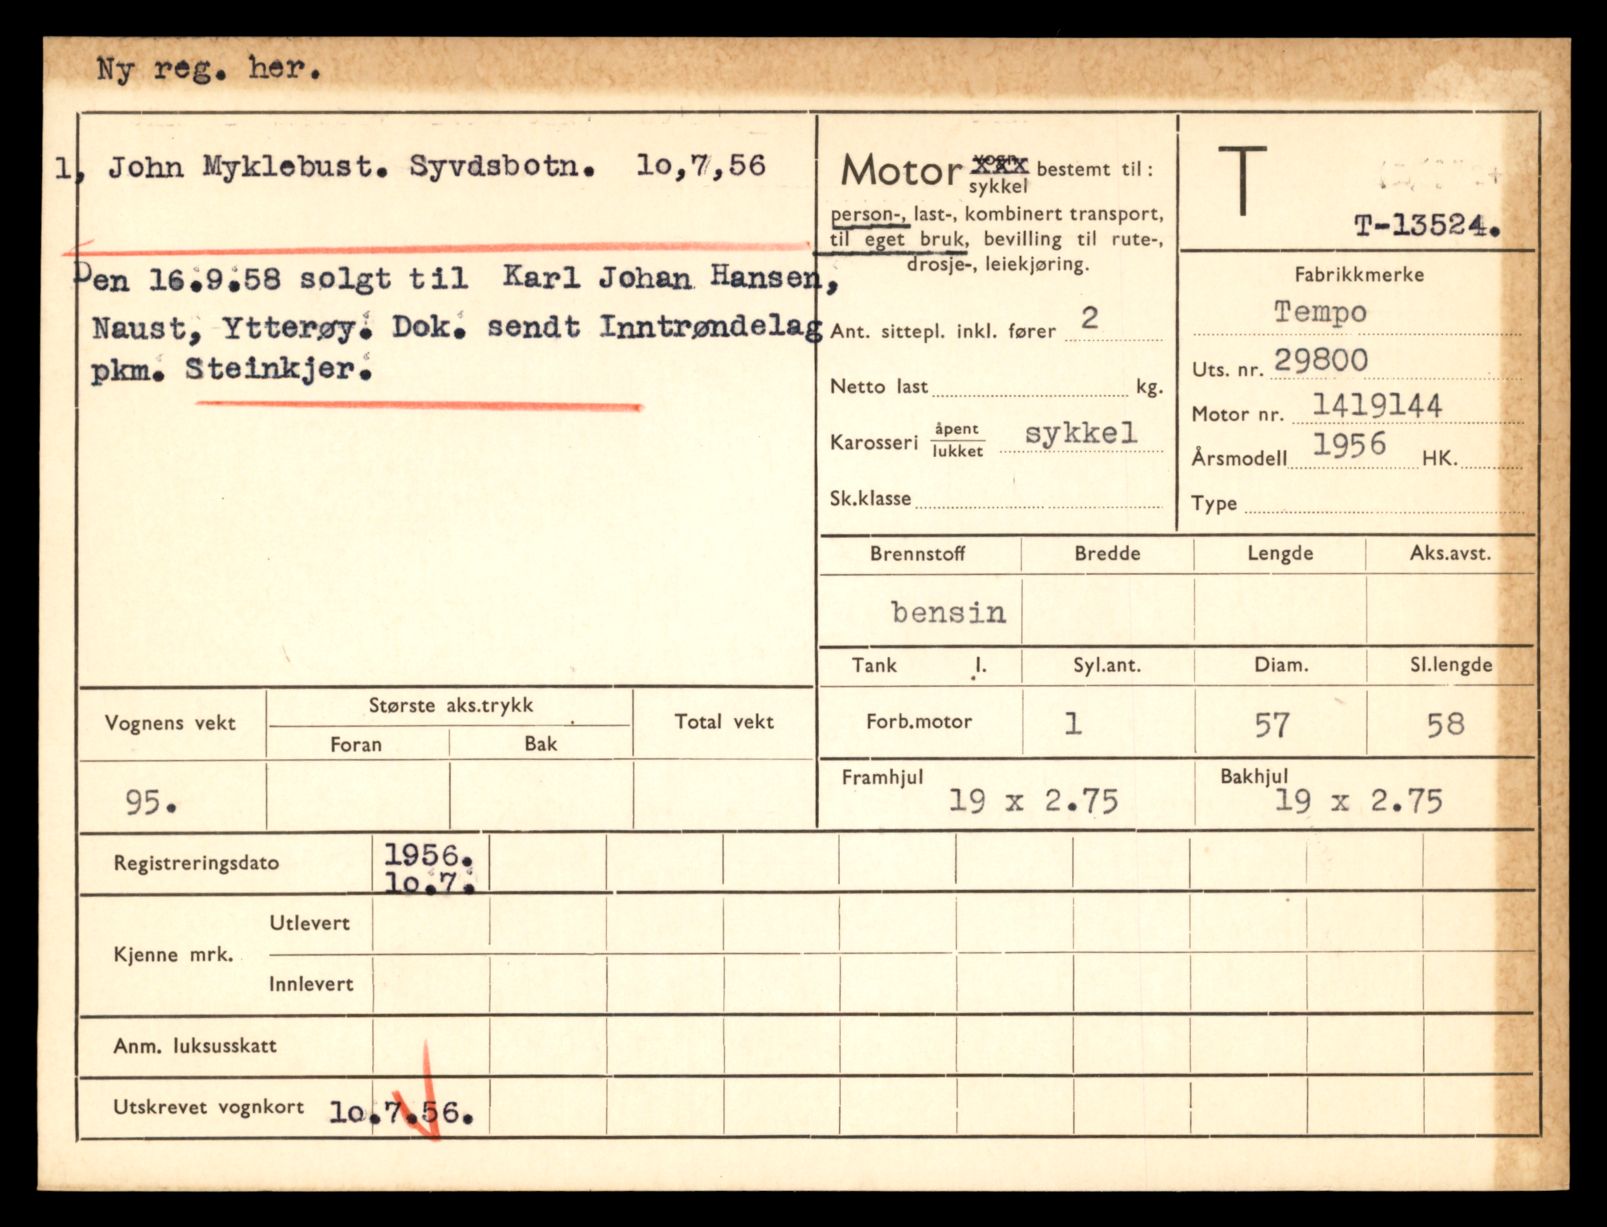 Ny reg. her.
1, John Myklebust. Syvdsbotn. 1o,7,56
Den 16.9.58 solgt til Karl Johan Hansen,
Naust, Ytterøy. Dok. sendt Inntrøndelag
pkm. Steinkjer.
Motor vogn sykkel bestemt til:
person-, last-, kombinert transport,
til eget bruk, bevilling til rute-,
drosje-, leiekjøring.
Ant. sittepl. inkl. fører 2
Netto last kg.
Karosseri åpent lukket sykkel
Sk.klasse
T
T-13524.
Fabrikkmerke
Tempo
Uts. nr. 29800
Motor nr. 1419144
Årsmodell 1956 HK.
Type
Brennstoff Bredde Lengde Aks.avst.
bensin
Tank l. Syl.ant. Diam. Sl.lengde
Forb.motor 1 57 58
Framhjul Bakhjul
19 x 2.75 19 x 2.75
Vognens vekt Største aks.trykk Total vekt
Foran Bak
95.
Registreringsdato 1956.
1o.7.
Kjenne mrk. Utlevert
Innlevert
Anm. luksusskatt
Utskrevet vognkort 1o.7.56.